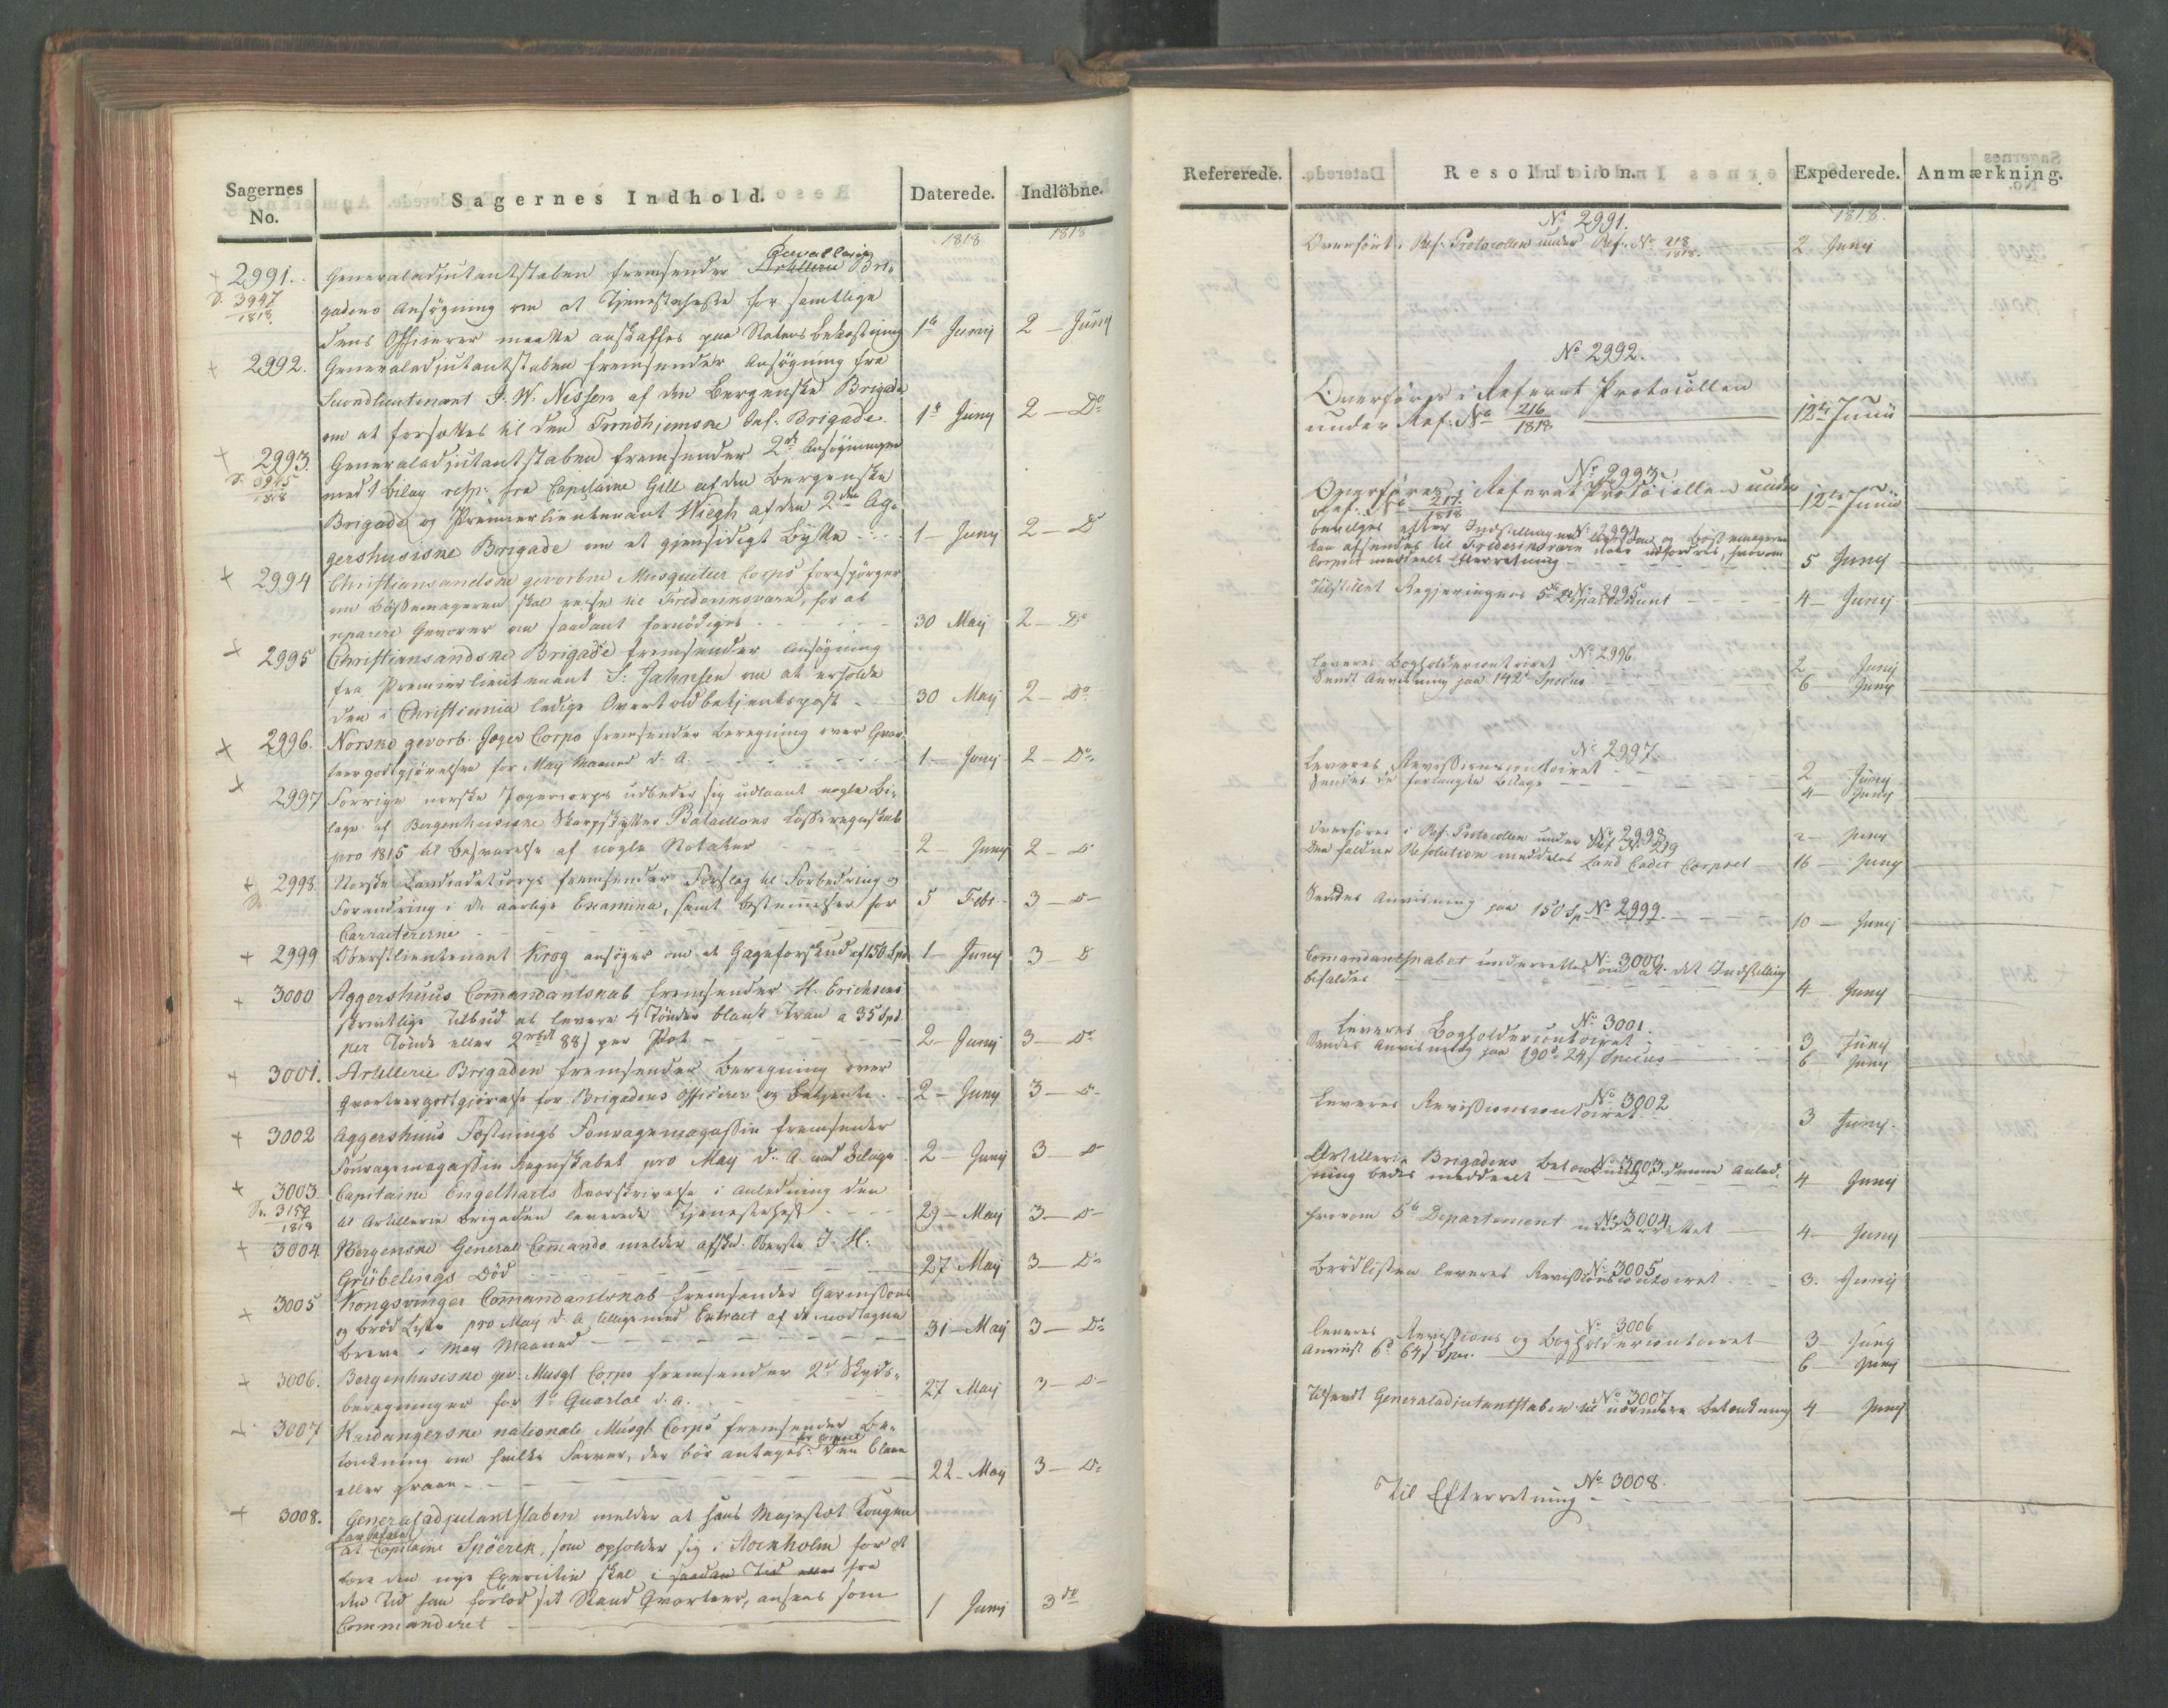 Sagernes No. Sagernes Indhold. Daterede. Indlöbne.
1818 1818
2991. Generaladjutantstaben fremsender Artillerie Cavallerie Bri-
S. 3947/1818 gadens Ansögning om at Tjenesteheste for samtlige
dens Officierer maatte anskaffes paa Statens bekostning 1ste Junij 2 - Junij
2992. Generaladjutantstaben fremsender Ansögning fra
Secondlieutenant J. W. Nissen af den Bergenske Brigade
om at forsættes til den Trondhiemske Inf: Brigade. 1ste Juny 2 - Do
2993. Generaladjutantstaben fremsender 2de Ansögninger
med 1 bilag resp: fra Capitaine Gill af den Bergenske
Brigade og Premierlieutenant Wiegh af den 2den Ag-
gershusiske Brigade om et gjensidigt Bytte 1 - Juny 2 - D
2994 Christiansandske gevorbne Musqueteer Corps forespörger
om Bössemageren skal reise til Frederiksværn, for at
reparere Geværer om saadant fornödiges 30 Maij 2 - Do
2995 Christiansandske Brigade fremsender Ansögning
fra Premierlieutenant S: Jahnsen om at erholde
den i Christiania ledige Overtoldbetjentspost 30 Maij 2 - Do
2996. Norske gevorb. Jæger Corps fremsender beregning over Qvar-
teergodtgjörelsen for May Maaned d. A. 1 - Junij 2 - Do
2997 Forrige norske Jægercorps udbeder sig udlaant nogle Bi-
lage af Bergenhusiske Skarpskytter Batailions Casseregnskab
pro 1815 til besvarelse af nogle Notater 2 - Juny 2 - D
2998 Norske Landcadetcorps fremsender Forslag til Forbedring og
Forandring i de aarlige Examina, samt Bestemmelser for
Carractererne 5 Febr 3 - D
2999 Oberstlieutenant Krog ansöger om et Gageforskud af 150 Spd 1 - Juny 3 - D
3000 Aggershuus Commandantskab fremsender H. Erichsens
skriftlige Tilbud at levere 4 Tönder blank Tran a 35 Spd.
per Tönde eller 2 88 per Pot 2 - Junij 3 - Do
3001. Artillerie Brigaden fremsender Beregning over
Qvarteergodtgjörelse for Brigadens Officerer og Betjente. 2 - Juny 3 - D
3002 Aggershuus Fæstnings Fouragemagassin fremsender
Fouragemagassin Regnskabet pro May d. A med Bilage 2 - Juny 3 - D
3003 Capitaine Engelharts Svarskrivelse i Anledning den
S. 3159/1818 til Artillerie Brigaden leverede Tjenestehest 29 - Maij 3 - D
3004 Bergenske General Commando melder afsked. Oberste J. H.
Grübelings Död 27 Maij 3 - Do
3005 Kongsvinger Commandantskab fremsender Garnisons
og Bröd Liste pro May d. A. tilligemed Extract af de modtagne
Breve i May Maaned 31 - Maij 3 - Do
3006. Bergenhusiske gev: Musqt Corps fremsender 2de Skyds-
beregninger for 1ste Quartal d. a. 27 Maij 3 - D
3007 Hardangerske nationale Musqt Corps fremsender Be-
tænkning om hvilken Farver, der bör antages for Corpset den blaae
eller graae 22 - Maij 3 - Do
3008. Generaladjutantstaben melder at hans Majestæt Kongen
har befalet at Capitaine Spörck, som opholder sig i Stockholm for at
lære den nye Exercitie skal i saadan Tid fra
den Tid han forlod sit Stand Qvarteer, ansees som
Commanderet 1 Junij 3 do
Refererede. Resolution. Expederede. Anmærkning.
1818.
No 2991.
Overfört i Ref: Protocollen under Ref: No 218/1818. 2 Juny
No 2992.
Overföres i Referat Protocollen
under Ref: No 216/1818 12te Junii
No 2993.
Overföres i Referat Protocollen under
Ref. No 217/1818 12te Junii
No 2994
bevilges efter Indstillingen og Bössemageren
kan afsendes til Frederiksværn naar udfordres, hvorom
Corpset meddeelt Efterretning 5 Junij
No 2995
Tilstillet Regjeringens 5te Departement 4 - Junij
No 2996
Leveres Bogholdercontoiret 2 Junij
Sendt Anviisning paa 142 Species 6 Juny
No 2997
Leveres Revisionscontoiret 2 Juny
Sendes de forlangte Bilage 4 - Juny
No 2998
Overföres i Ref: Protocollen under Ref No 219 2 - Juny
Den faldne Resolution meddeles Land Cadet Corpset 16 - Juny
No 2999.
Sendes Anviisning paa 150 Sp 10 - Junij
No 3000.
Commandantskabet underrettes om at det Indstilling
bifaldes 4 - Juny
No 3001.
Leveres Bogholdercontoiret 3 Juny
Sendes Anviisning paa 190 24 Species 6 Juny
No 3002
Leveres Revisionscontoiret 3 Juny.
No 3003
Artillerie Brigadens Betænkning i denne Anled-
ning bedes meddeelt 4 Junij
No 3004
hvorom 5te Departement underrettet 4 - Juny
No 3005
Brödlisten leveres Revisionscontoiret 3. Junij
No 3006
Leveres Revisions og Bogholdercontoiret 3 - Juny
Anviist 6 64 Spec. 6 Juny
No 3007
Tilsendt Generaladjutantstaben til nærmere Betænkning 4 Junij
No 3008.
Til Efterretning